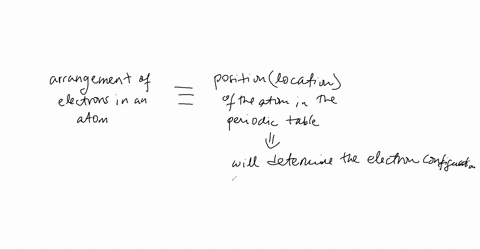 arrangement of
electrons in an
atom
≡
position (location)
of the atom in the
periodic table
⇓
will determine the electron configuration